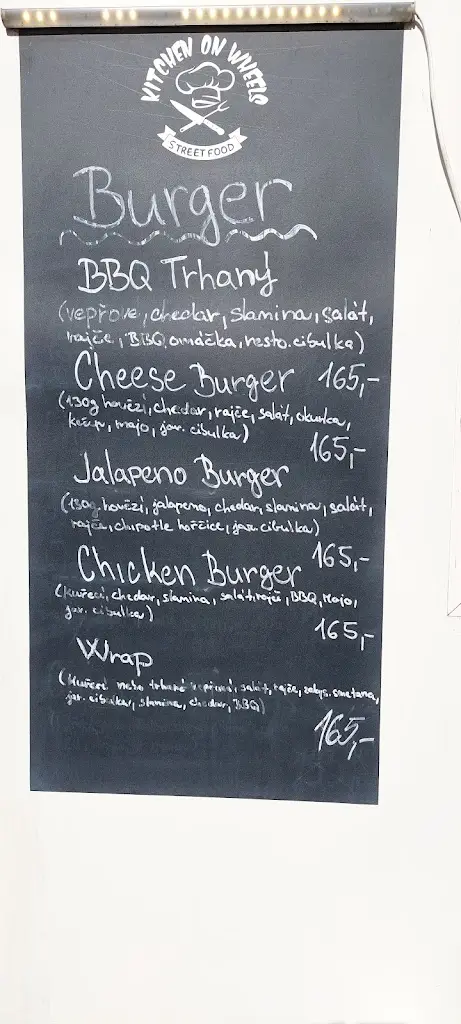 KITCHEN ON WHEELS
STREET FOOD
Burger
BBQ Trhaný
(vepřové, chedar, slanina, salát,
rajče, BBQ omáčka, resto. cibulka)
Cheese Burger 165,-
(130g hovězí, chedar, rajče, salát, okurka,
kečup, majo, jar. cibulka)
165,-
Jalapeno Burger
(130g. hovězí, jalapeno, chedar, slanina, salát,
rajče, chipotle hořčice, jar. cibulka)
165,-
Chicken Burger
(kuřecí, chedar, slanina, salát, rajče, BBQ, Majo,
jar. cibulka)
165,-
Wrap
(Kuřecí nebo trhané vepřové, salát, rajče, zakys. smetana,
jar. cibulka, slanina, chedar, BBQ)
165,-